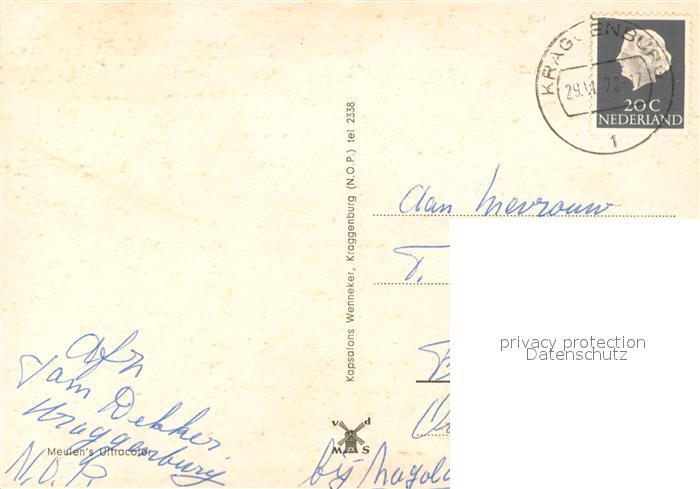 KRAGGENBURG
29.VI.72
1
20C
NEDERLAND
Kapsalons Wenneker, Kraggenburg (N.O.P.) tel 2338
Aan Mevrouw
T.
privacy protection
Datenschutz
Afz
Jan Dekker
Kraggenburg
N.O.P.
Meulen's Ultracolor
v d
M S
bij Nagold